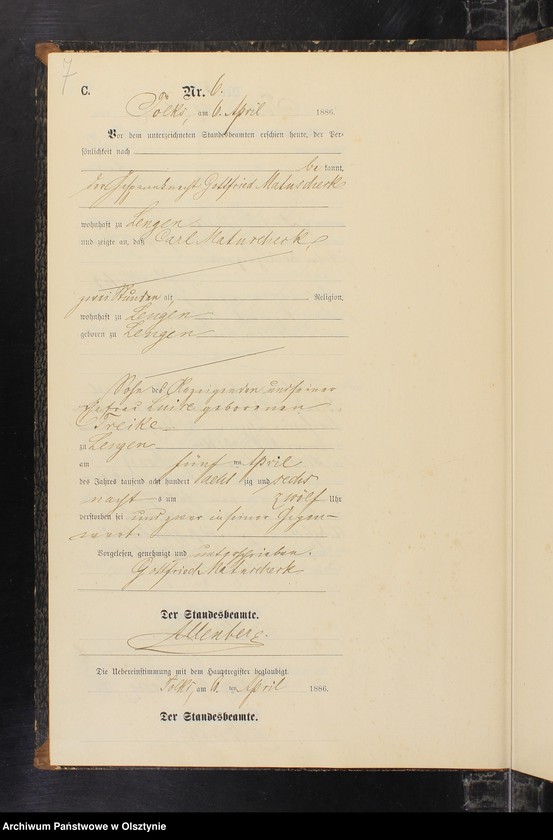 7
C.
Nr. 6.
Tolks, am 6. April 1886.
Vor dem unterzeichneten Standesbeamten erschien heute, der Per-
sönlichkeit nach
be kannt,
der Gottfried Matuscheck
wohnhaft zu Lengen
und zeigte an, daß Carl Matuscheck,
zwei Stunden, alt Religion,
wohnhaft zu Lengen
geboren zu Lengen
Sohn des Anzeigenden und seiner
Ehefrau Luise geborenen
Treike
zu Lengen
am fünf ten April
des Jahres tausend acht hundert acht zig und sechs
nacht s um zwölf Uhr
verstorben sei und zwar in seiner Gegen-
wart.
Vorgelesen, genehmigt und unterschrieben.
Gottfried Matuscheck
Der Standesbeamte.
Die Uebereinstimmung mit dem Hauptregister beglaubigt.
Tolks, am 6. ten April 1886.
Der Standesbeamte.
Archiwum Państwowe w Olsztynie